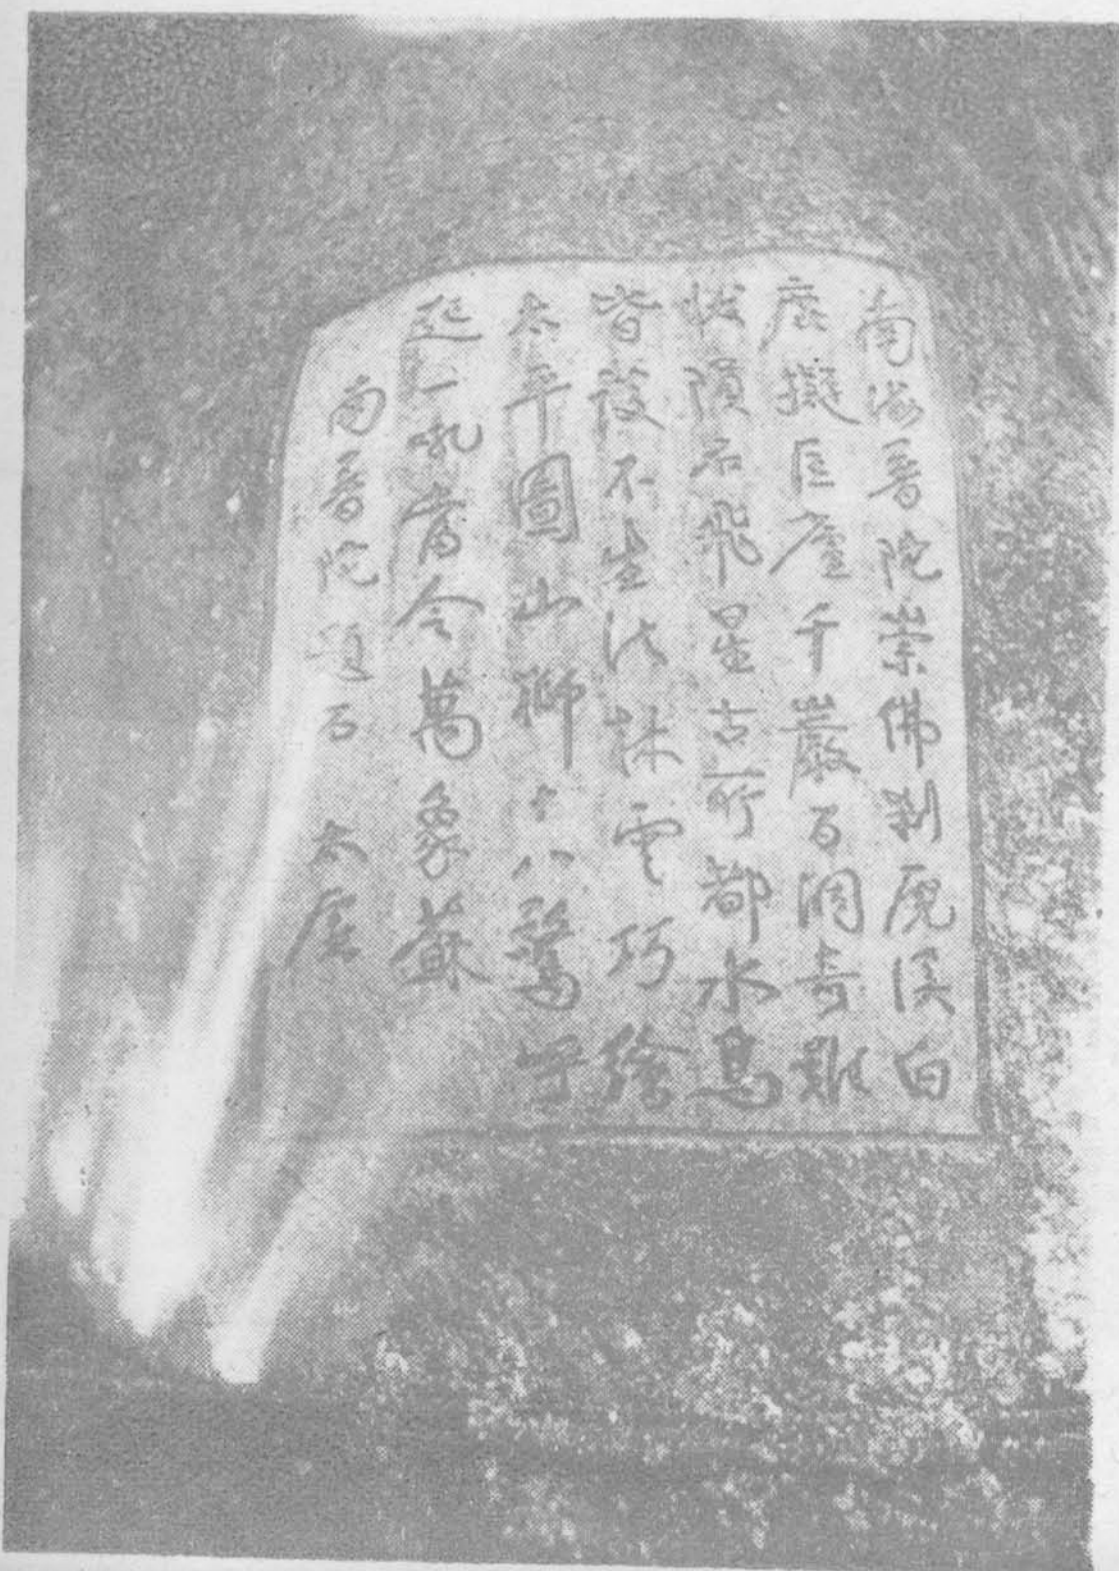 南海普陀崇佛刹虎溪白
鹿擬匡廬千巖百澗奇難
狀隕石飛星古所都水鳥
皆不生法林雲巧繪
太平圖山獅十八驚呼
起一吼當令萬象蘇
南普陀題石 太虛